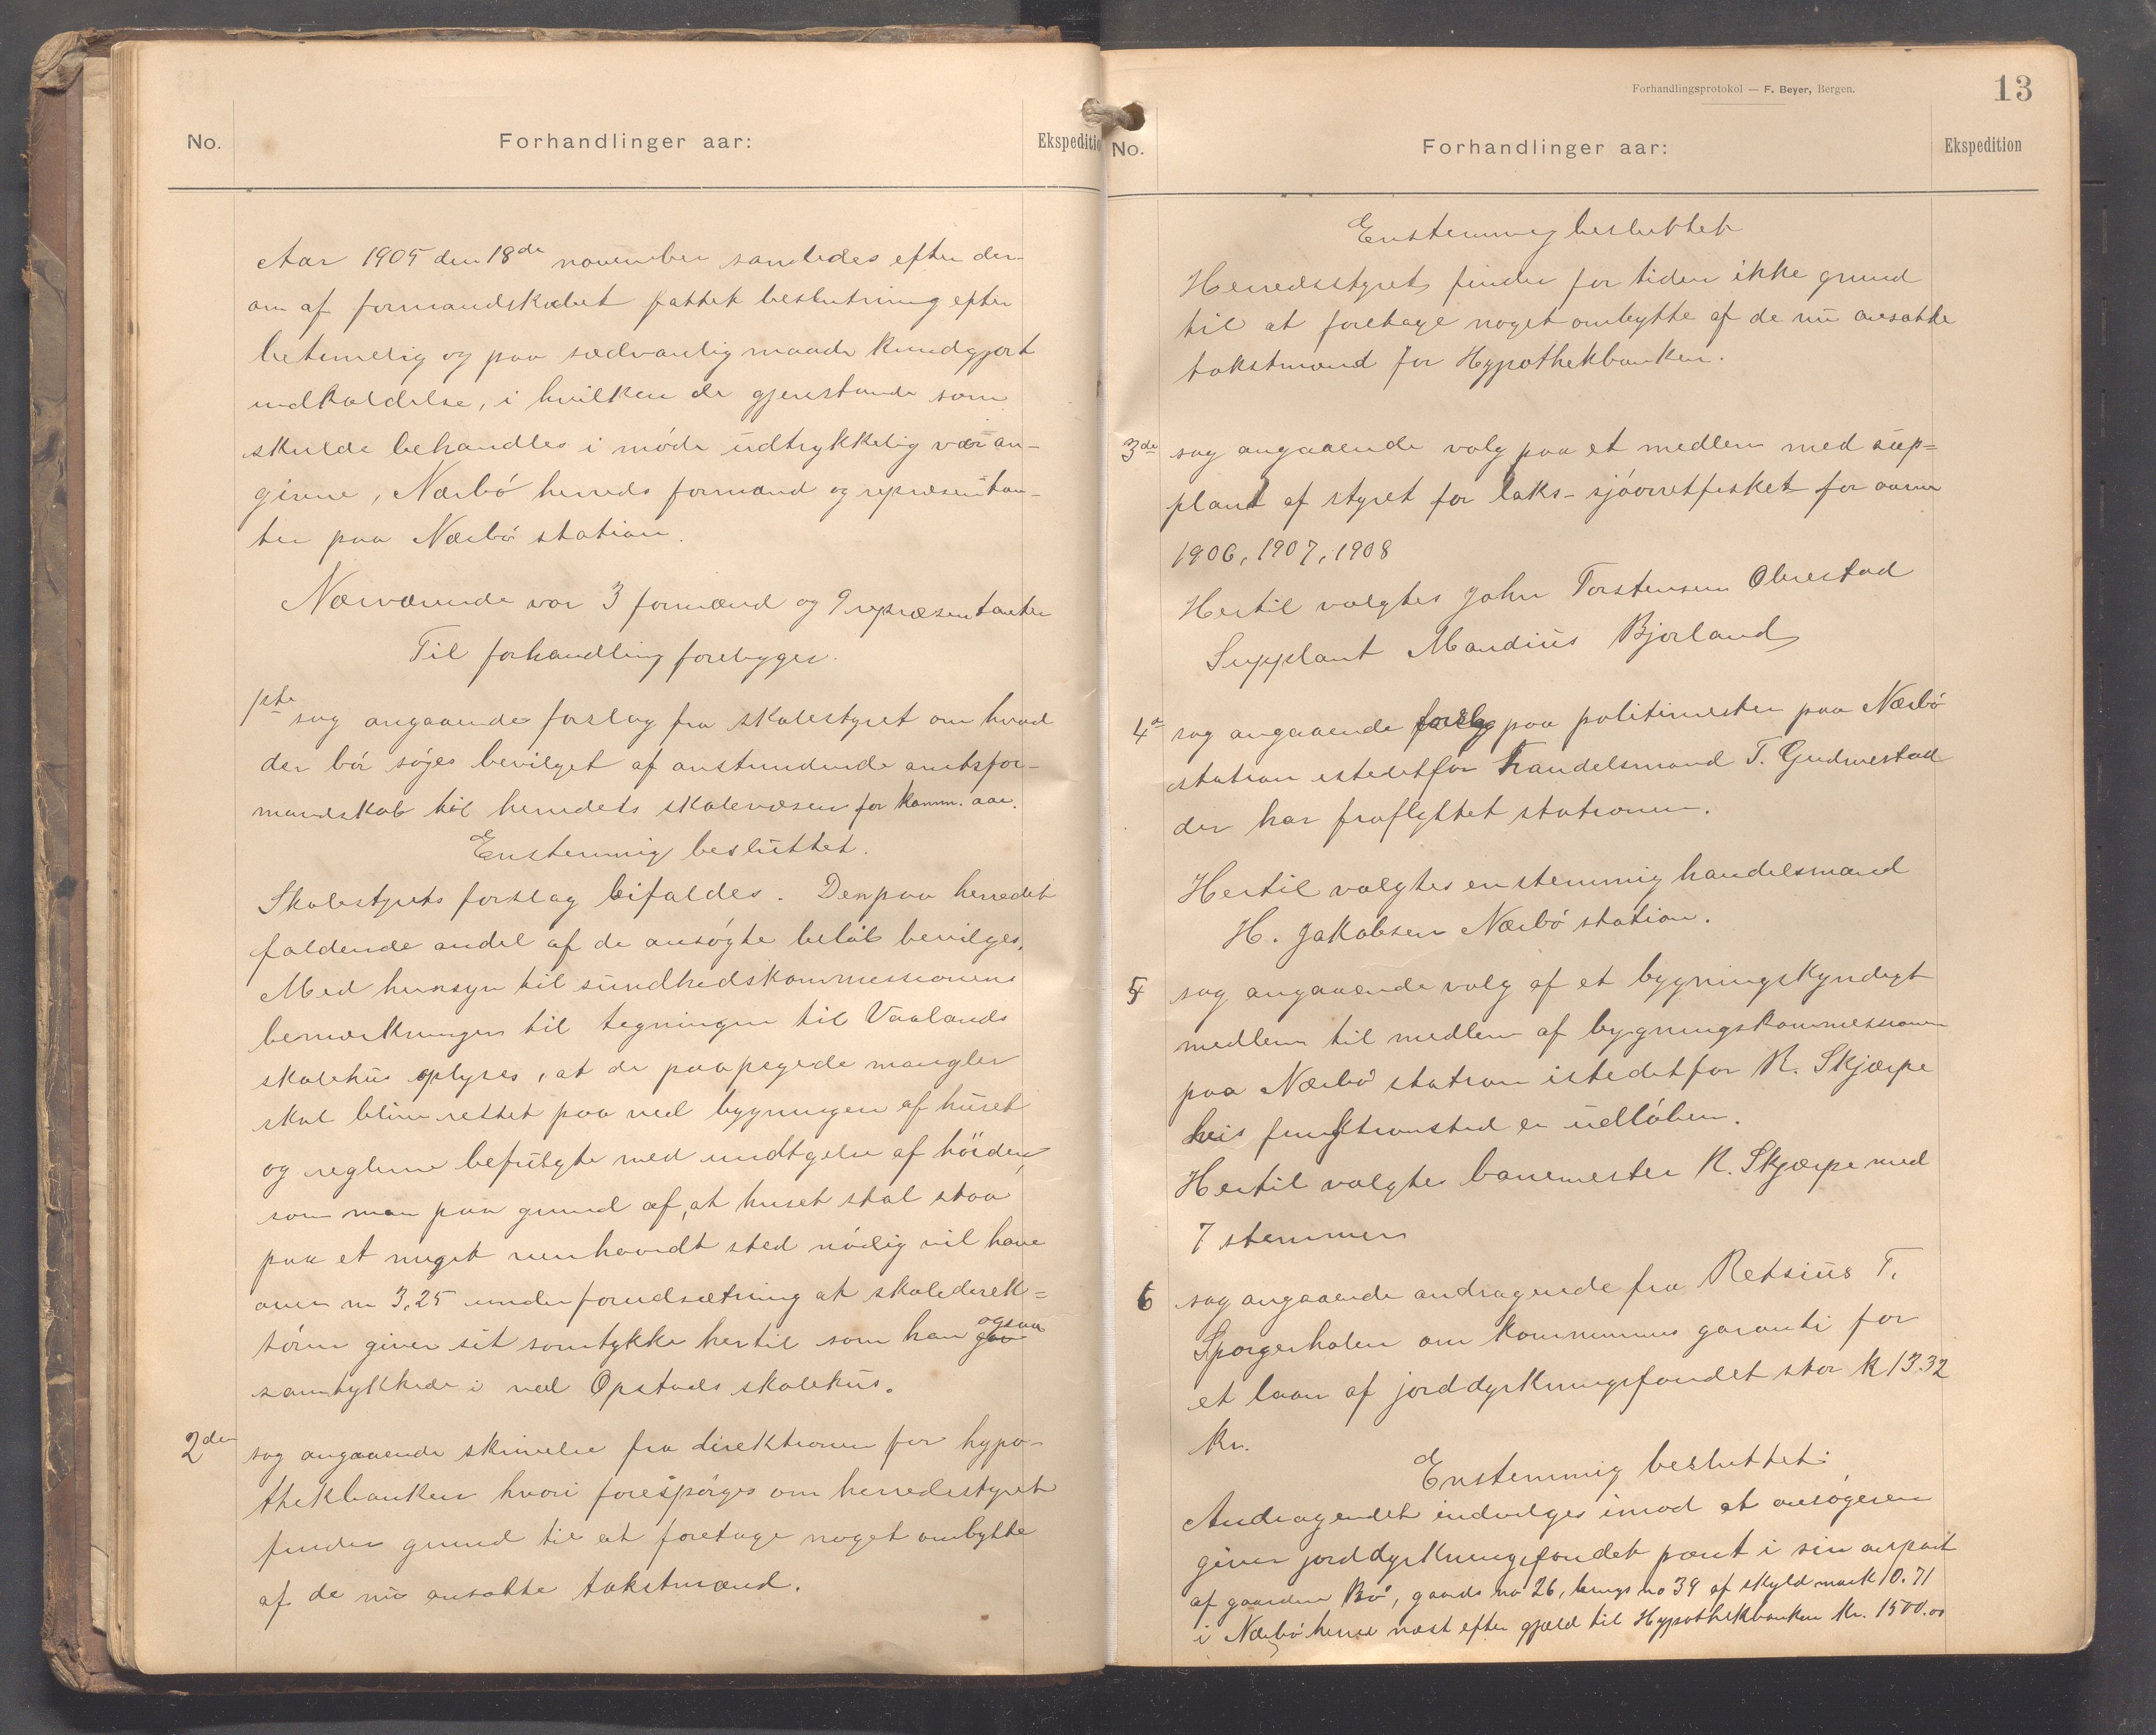 No.
Forhandlinger aar:
Ekspeditio
Aar 1905 den 18de november samledes efter der-
om af formandskabet fattet beslutning efter
betimelig og paa sædvanlig maade kundgjort
indkaldelse, i hvilken de gjenstande som
skulde behandles i møde udtrykkelig var an-
givne, Nærbø herreds formænd og repræsentan-
ter paa Nærbø station.
Nærværende var 3 formænd og 9 repræsentanter
Til forhandling forebygges.
1ste sag angaaende forslag fra skolestyret om hvad
der bør søges bevilget af anstundende amtsfor-
mandskab til herredets skolevæsen for komm. aar.
Enstemmig besluttet.
Skolestyrets forslag bifaldes. Den paa herredet
faldende andel af de ansøgte beløb bevilges.
Med hensyn til sundhedskommessionens
bemærkninger til tegningen til Vaalands
skolehus oplyses, at de paapegede mangler
skal blive rettet paa ved bygningen af huset
og reglerne befulgte med undtgelse af høiden,
som man paa grund af, at huset skal staa
paa et meget veirhaardt sted nødig vil have
over m 3.25 under forudsætning at skoledirek=
tøren giver sit samtykke hertil som han ogsaa
samtykkede i ved Opstads skolehus.
2den sag angaaende skrivelse fra direktionen for hypo-
thekbanken hvori forespørges om herredsstyret
finder grund til at foretage noget ombytte
af de nu ansatte takstmænd.
Forhandlingsprotokol — F. Beyer, Bergen.
13
No.
Forhandlinger aar:
Ekspedition
Enstemmig besluttet
Herredsstyret finder for tiden ikke grund
til at foretage noget ombytte af de nu ansatte
takstmænd for Hypothekbanken.
3de sag angaaende valg paa et medlem med sup=
plant af styret for laks- sjøørretfisket for aarene
1906, 1907, 1908
Hertil valgtes John Torstensen Obrestad
Supplant Mandius Bjorland
4de sag angaaende forslag paa politimester paa Nærbø
station istedetfor handelsmand T. Gudmestad
der har fraflyttet stationen.
Hertil valgtes enstemmig handelsmand
H. Jakobsen Nærbø station.
5 sag angaaende valg af et bygningskyndigt
medlem til medlem af bygningskommessionen
paa Nærbø station istedetfor R. Skjærpe
hvis funktionstid er udløben.
Hertil valgtes banemester R. Skjærpe med
7 stemmer
6 sag angaaende andragende fra Retsius T.
Sporgerholen om kommunens garanti for
et laan af jorddyrkningsfondet stor k 1332
kr.
Enstemmig besluttet:
Andragendet indvilges imod at ansøgeren
giver jorddyrkningsfondet pant i sin anpart
af gaarden Bø, gaards no 26, brugs no 39 af skyld mark 0.71
i Nærbø herred næst efter gjæld til Hypothekbanken kr. 1500.00